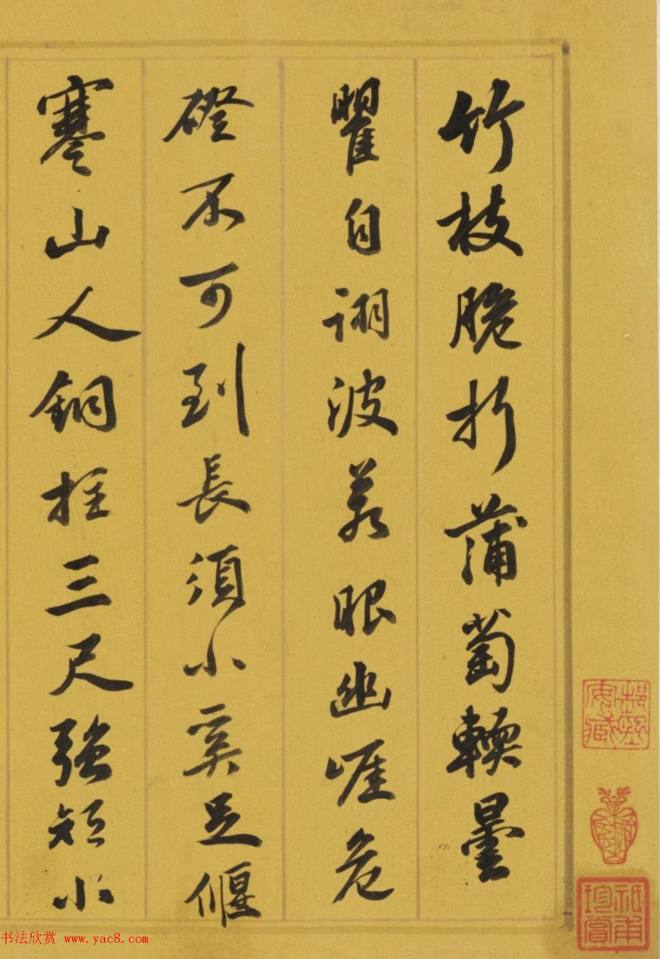 竹枝脆折蒲萄輭曇
瞿自詡波若眼幽崖危
磴不可到長須小奚足偃
蹇山人銅拄三尺強短小
书法欣赏 www.yac8.com